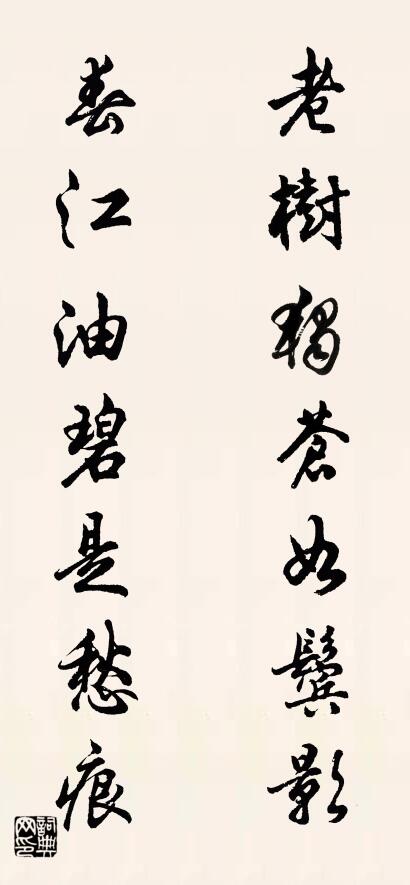 老樹獨蒼如鬢影
春江油碧是愁痕
詞典网印